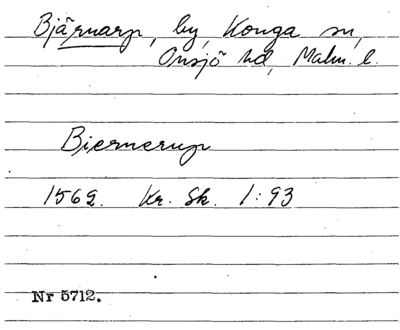 Bjärnarp, by, Konga sn,
Onsjö hd, Malm. l.
Biernerup
1569. Kr. Sk. 1:93
Nr 5712.